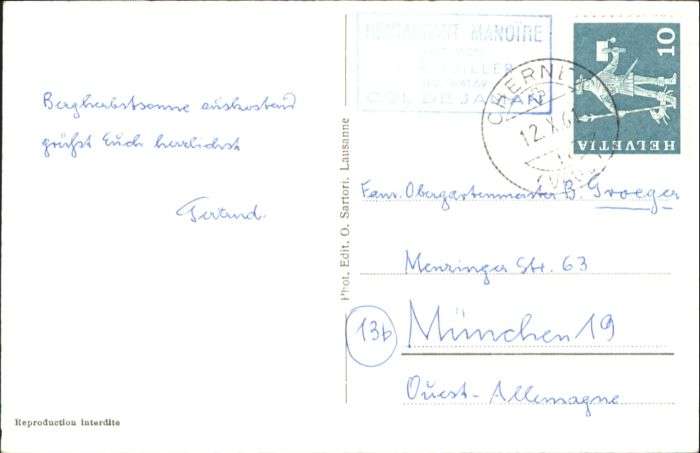 Bergherbstsonne auskostend
grüßt Euch herzlichst
Gertrud.
Reproduction interdite
Phot. Edit. O. Sartori, Lausanne
RESTAURANT MANOIRE
COL DE JAMAN
12.X.61
HELVETIA
10
Fam. Obergartenmeister B. Groeger
Menzinger Str. 63
13b
München 19
Ouest-Allemagne